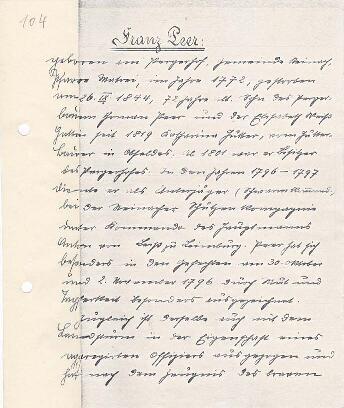 104
Franz Peer:
geboren am Pergerhof, Gemeinde
Pfarre Matrei, im Jahre 1772, gestorben
am 26. IX 1844, 72 Jahre alt. Sohn des Perger-
bauern Peer und der Elisabeth
Gatten seit 1819 Katharina Hütter, vom Hütter-
bauer in 1801 war er Besitzer
des Pergerhofes in den Jahren 1796 - 1797
diente er als Unterjäger (
bei der Schützen Kompagnie
unter Kommando des Hauptmanns
Anton von zu Peer hat sich
besonders in den Gefechten am 30. Oktober
und 2. November 1796 durch Mut und
Tapferkeit besonders ausgezeichnet.
Zugleich ist derselbe auch mit dem
Landsturm in der Eigenschaft eines
Offiziers ausgezogen und
hat nach dem Zeugnis des braven